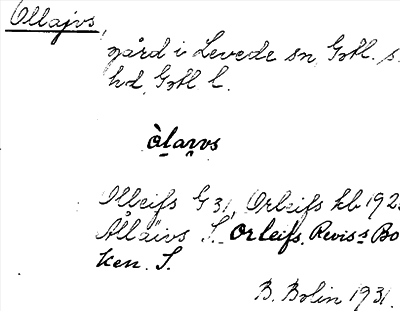 Ollajvs,
gård i Levede sn, Gotl. s.
hd, Gotl. l.
òlarvs
Olleifs G 31, Orleifs kb 192
Allaivs S. Orleifs. Reviss Bo
ken. S.
B. Bolin 1931.